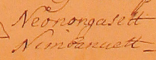 Neonongasett
Nimbanuett